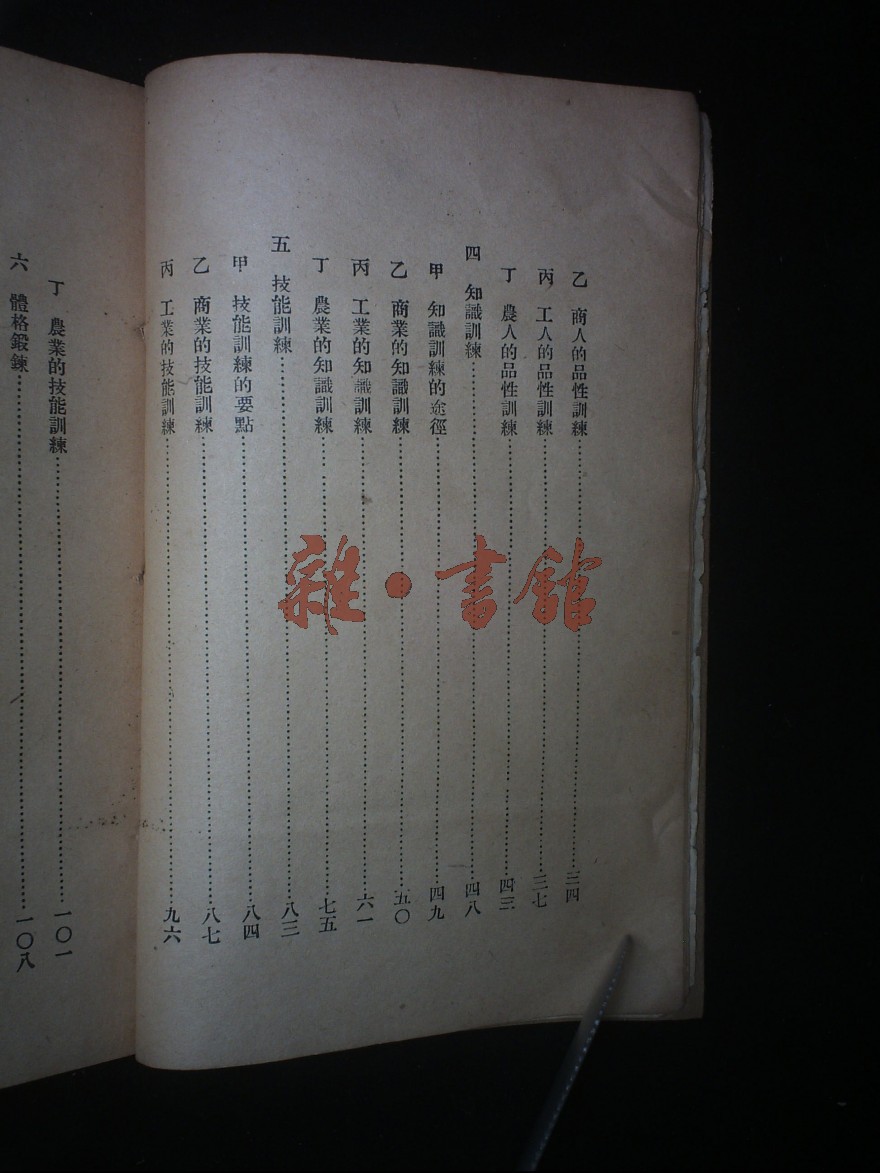 乙 商人的品性訓練……三四
丙 工人的品性訓練……三七
丁 農人的品性訓練……四三
四 知識訓練……四八
甲 知識訓練的途徑……四九
乙 商業的知識訓練……五〇
丙 工業的知識訓練……六一
丁 農業的知識訓練……七五
五 技能訓練……八三
甲 技能訓練的要點……八四
乙 商業的技能訓練……八七
丙 工業的技能訓練……九六
丁 農業的技能訓練……一〇一
六 體格鍛鍊……一〇八
雜·書館